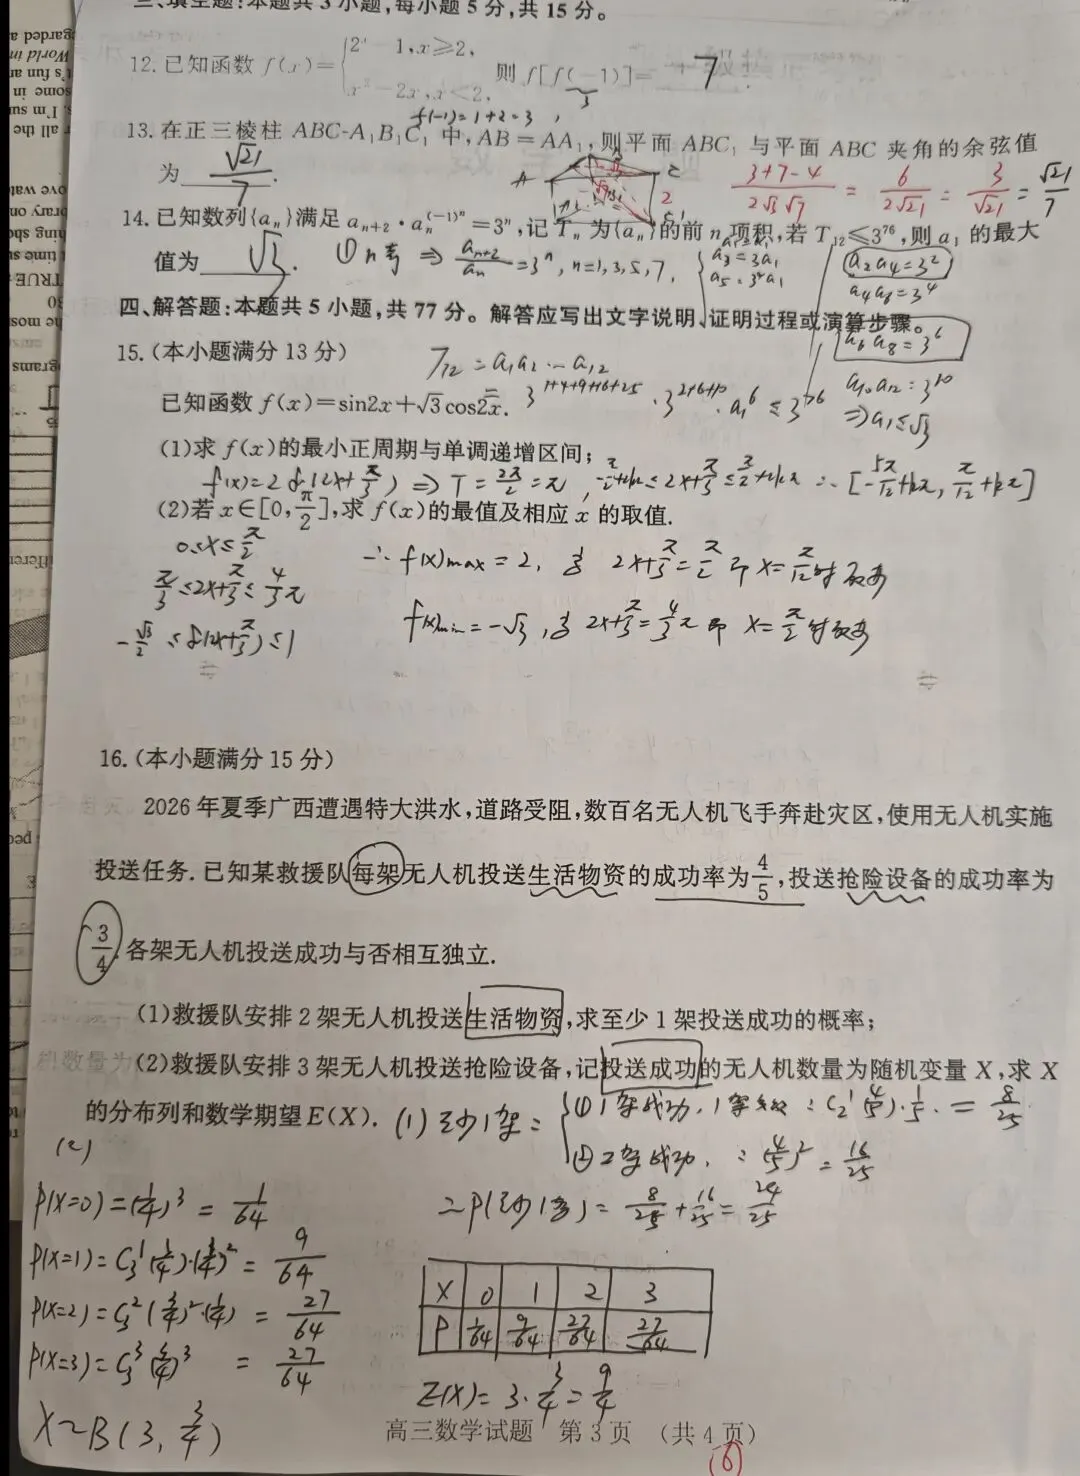 三、填空题:本题共3小题,每小题5分,共15分。
12.已知函数 f(x)={2ˣ-1,x≥2, x²-2x,x<2, 则 f[f(-1)]= 7 .
3
f(-1)=1+2=3
13.在正三棱柱 ABC-A₁B₁C₁ 中,AB=AA₁,则平面 ABC₁ 与平面 ABC 夹角的余弦值
为 √21/7 .
(3+7-4)/(2√3√7) = 6/(2√21) = 3/√21 = √21/7
14.已知数列{aₙ}满足 aₙ₊₂·aₙ^((-1)ⁿ)=3ⁿ,记 Tₙ 为{aₙ}的前 n 项积,若 T₁₂≤3⁷⁶,则 a₁ 的最大
值为 √3 .
① n奇 ⇒ aₙ₊₂/aₙ=3ⁿ, n=1,3,5,7,
a₃=3a₁
a₅=3⁴a₁
a₂a₄=3²
a₄a₆=3⁴
a₆a₈=3⁶
a₁₀a₁₂=3¹⁰
⇒a₁≤√3
四、解答题:本题共5小题,共77分。解答应写出文字说明、证明过程或演算步骤。
15.(本小题满分13分)
T₁₂=a₁a₂…a₁₂
=3^(1+4+9+16+25)·3^(2+6+10)·a₁⁶≤3⁷⁶
已知函数 f(x)=sin2x+√3cos2x.
(1)求 f(x)的最小正周期与单调递增区间;
f(x)=2 (2x+π/3) ⇒ T=2π/2=π, -π/2+2kπ≤2x+π/3≤π/2+2kπ ∴ [-5π/12+kπ,π/12+kπ]
(2)若 x∈[0,π/2],求 f(x)的最值及相应 x 的取值.
0≤x≤π/2
π/3≤2x+π/3≤4/3π
-√3/2≤ (2x+π/3)≤1
∴ f(x)max=2, 当 2x+π/3=π/2 即 x=π/12时取等
f(x)min=-√3,当 2x+π/3=4/3π 即 x=π/2时取等
16.(本小题满分15分)
2026年夏季广西遭遇特大洪水,道路受阻,数百名无人机飞手奔赴灾区,使用无人机实施
投送任务.已知某救援队每架无人机投送生活物资的成功率为4/5,投送抢险设备的成功率为
3/4.各架无人机投送成功与否相互独立.
(1)救援队安排2架无人机投送生活物资,求至少1架投送成功的概率;
(2)救援队安排3架无人机投送抢险设备,记投送成功的无人机数量为随机变量 X,求 X
的分布列和数学期望 E(X).
(1)至少1架={①1架成功,1架失败:C₂¹(4/5)·1/5=8/25
②2架成功:(4/5)²=16/25
∴P(至少1架)=8/25+16/25=24/25
(2)
P(X=0)=(1/4)³=1/64
P(X=1)=C₃¹(3/4)·(1/4)²=9/64
P(X=2)=C₃²(3/4)²·(1/4)=27/64
P(X=3)=C₃³(3/4)³=27/64
X~B(3,3/4)
X 0 1 2 3
P 1/64 9/64 27/64 27/64
E(X)=3·3/4=9/4
高三数学试题 第3页 (共4页)
(6)